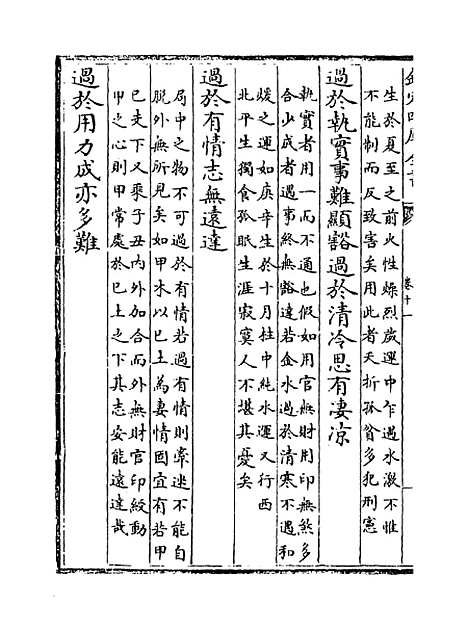 卷十一
生於夏至之前火性燥烈歲運中乍遇水激不惟
不能制而反致害矣用此者夭折孤貧多犯刑憲
過於執實事難顯豁過於清冷思有凄凉
執實者用一而不通也假如用官無財用印無煞多
合少成者遇事終無豁達若金水過於清寒不遇和
煖之運如庚辛生於十月柱中純水運又行西
北平生獨食孤眠生涯寂寞人不堪其憂矣
過於有情志無遠達
局中之物不可過於有情若過有情則牽迷不能自
脱外無所見矣如甲木以巳土為妻情固宜有若甲
巳走下又乘子丑内外加合而外無財官印綬動
甲之心則甲常處於巳土之下其志安能遠達哉
過於用力成亦多難